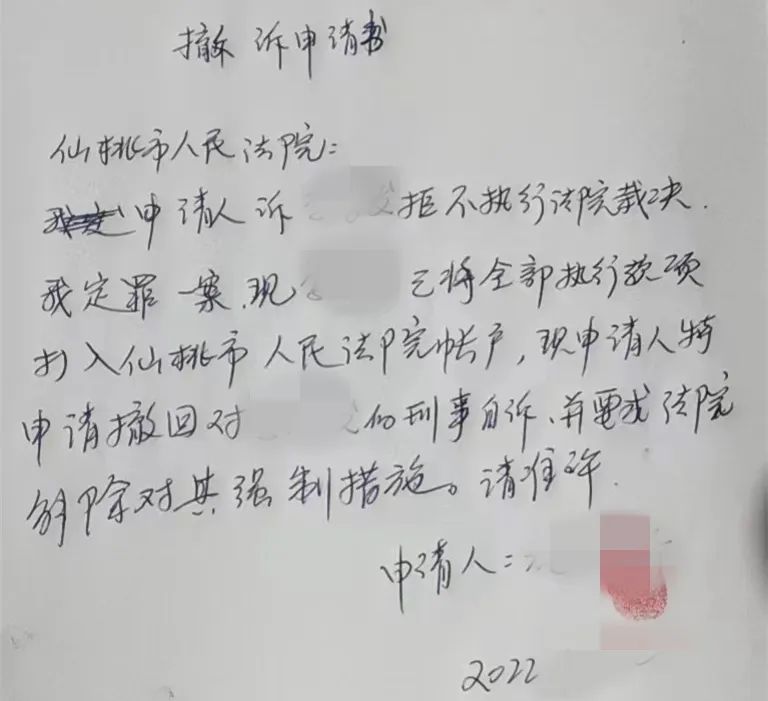 撤诉申请书
仙桃市人民法院：
申请人诉 拒不执行法院裁决.
裁定罪一案,现 已将全部执行款项
打入仙桃市人民法院帐户,现申请人特
申请撤回对 的刑事自诉、并要求法院
解除对其强制措施。请准许.
申请人：
2022